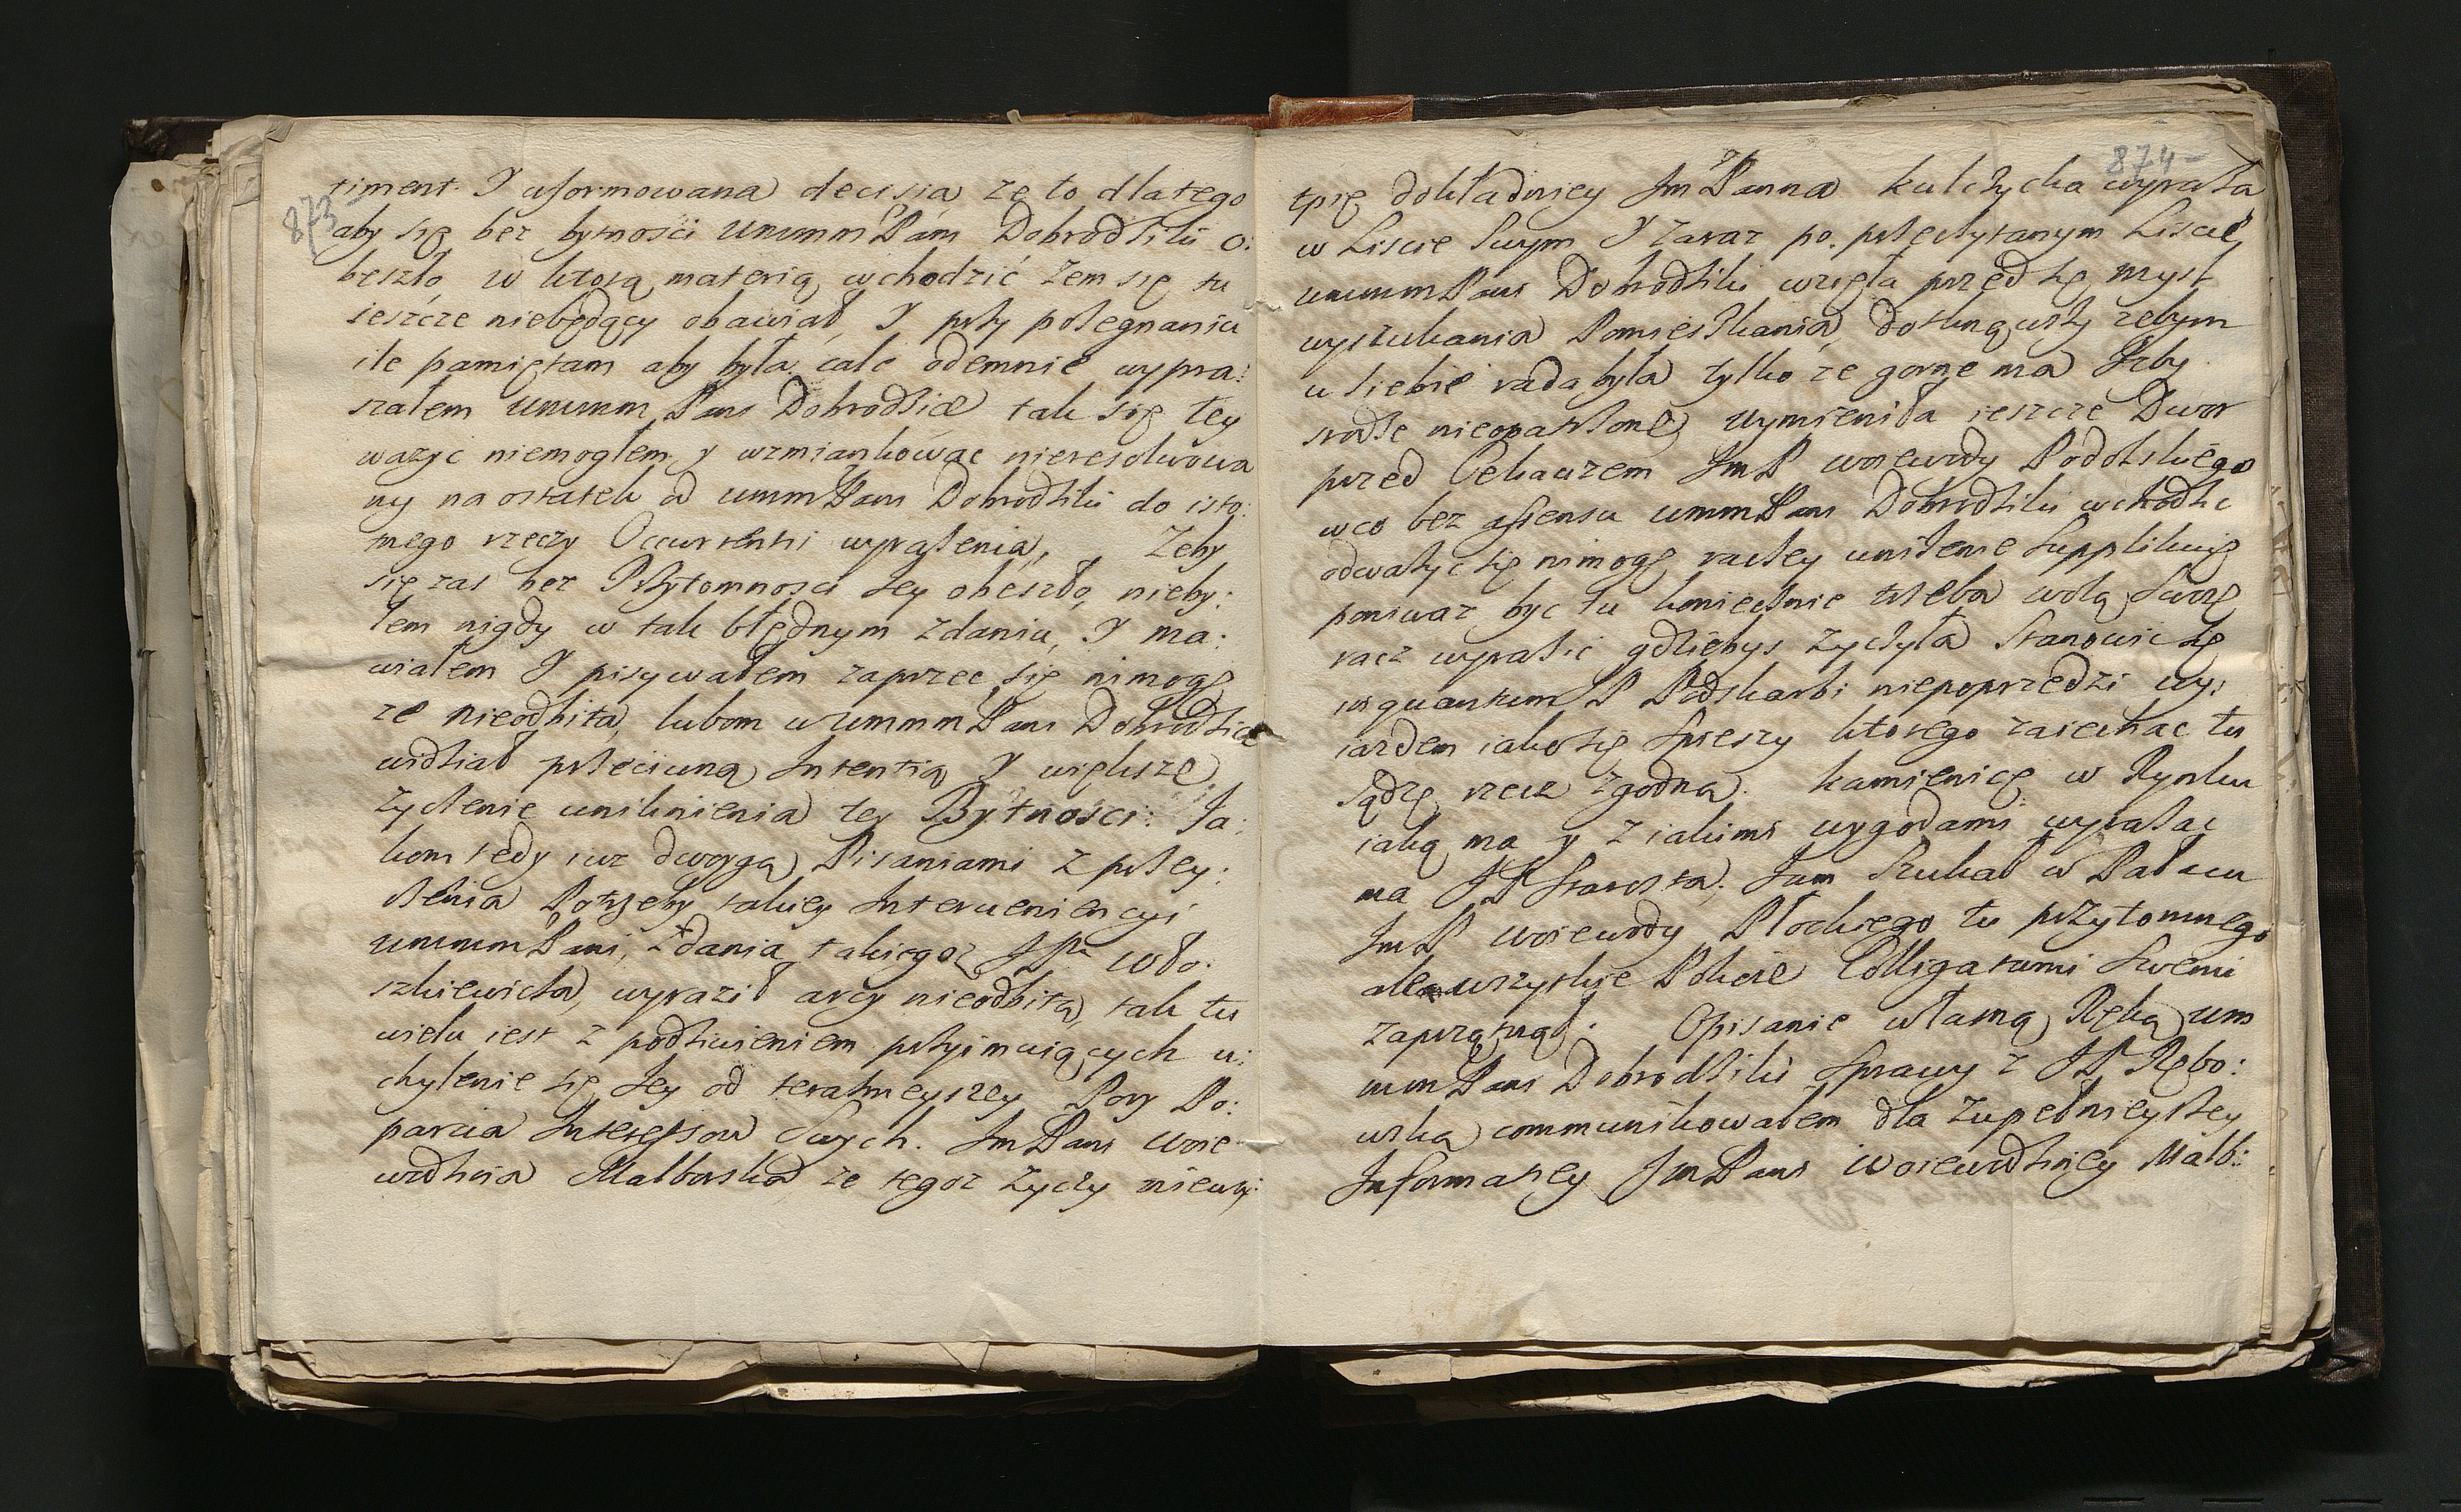 873
timent. Y uformowana decisia ze to dlatego
aby się bez bytnosci WmmmPani Dobrodziki o:
beszło, w ktorą materią wchodzić zem się tu
ieszcze niebędący obawiał, Y przy pozegnaniu
ile pamiętam aby była cale odemnie wypra:
szałem WmmmPani Dobrodzice tak się tey
wazyc niemogłem y wzmiankować nieresolwowa
ny na ostatek od WmmPani Dobrodziki do isto:
tnego rzeczy Occurrentii wyrazenia, Zeby
się zas bez Przytomnosci Jey obeszło, nieby:
łem nigdy w tak błędnym zdaniu, Y ma:
wiałem Y pisywałem zaprzec się nimogę
ze nieodbita, lubom u WmmmPani Dobrodzice
widział przeciwną Intentią Y większe
zyczenie uniknienia tey Bytnosci: Ja:
kom tedy iuz dwoygą Pisaniami z przey:
rzenia Potrzeby takiey Interveniencyi
WmmmPani, zdania takiegoz JPa Wło:
szkiewicza, wyraził arcy nieodbitą, tak tu
wielu iest z podziwieniem przyimuiących u:
chylenie się Jey od teraznieyszey Pory Po:
parcia Interessow Swych. JmPani Woie
wodzina Malborska ze tegoz zyczy niewą:
874
tpię dokładniey JmPanna Kulczycka wyraza
w Liscie Swym Y zaraz po przeczytanym Liscie
WmmmPani Dobrodziki wzięła przed się mysl
wyszukania Pomieszkania, dotknąwszy zebym
u siebie rada była tylko ze gorne ma Izby
srodze nieopatrzone, Wymieniła ieszcze Dwor
przed Cekauzem JmP Woiewody Podolskiego
w co bez assensu WmmPani Dobrodziki wchodzic
odwazyc się nimogę raczey unizenie Supplikuię
poniwaz byc tu koniecznie trzeba wolą Swoię
racz wyrazic gdziebys zyczyła Stanowic się
inquantum P Podskarbi niepoprzedzi wy:
iazdem iako się spieszy ktorego zaiechac tu
sądzę rzecz zgodna. Kamienicę w Rynku
iaką ma y z iakimi wygodami wyrazac
ma JP Starosta. Jam Szukał w Pałacu
JmP Woiewody Płockiego tu przytomnego
ale wszytkie Pokoie Colligatami Swemi
zaprzątnął. Opisanie własną Ręką Wm
mmPani Dobrodziki Sprawy z JP Rębo:
wską communikowałem dla zupełnieyszey
Informacyey JmPani Woiewodziney Malb: